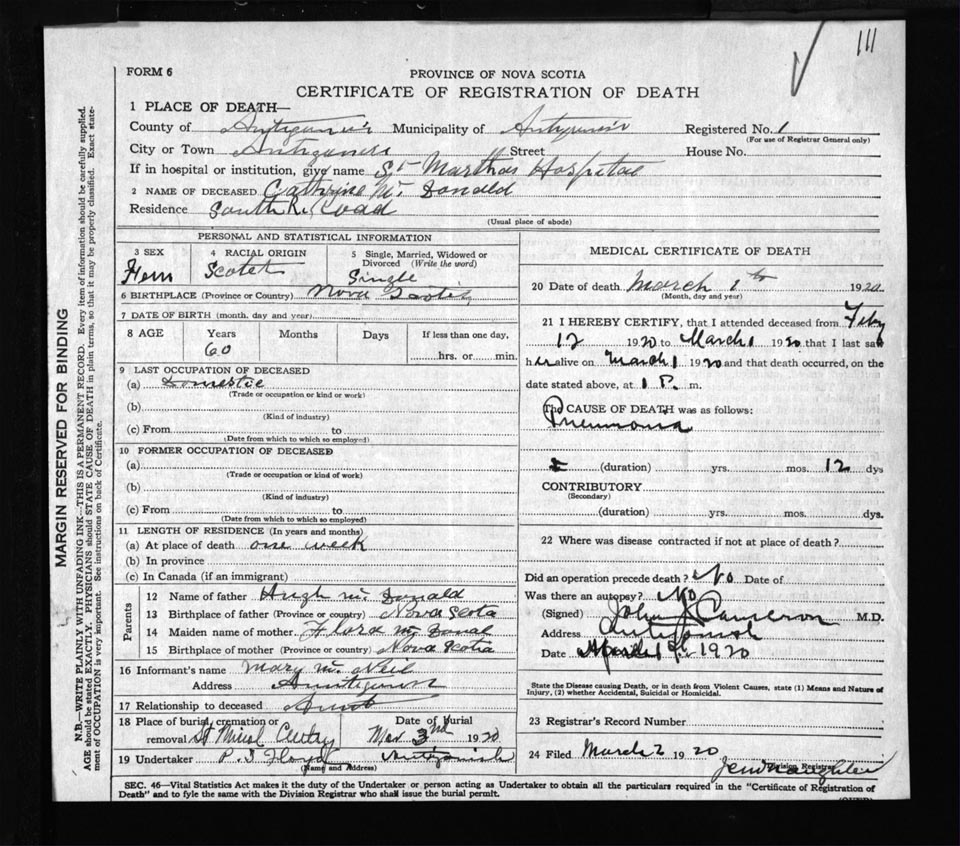 111
FORM 6
PROVINCE OF NOVA SCOTIA
CERTIFICATE OF REGISTRATION OF DEATH
1 PLACE OF DEATH—
County of Municipality of Registered No. 1
(For use of Registrar General only)
City or Town Street House No.
If in hospital or institution, give name St Marthas Hospital
2 NAME OF DECEASED Cathrine Mc Donald
Residence South R. Road
(Usual place of abode)
PERSONAL AND STATISTICAL INFORMATION
3 SEX 4 RACIAL ORIGIN 5 Single, Married, Widowed or Divorced (Write the word)
Fem Scotch Single
6 BIRTHPLACE (Province or Country) Nova Scotia
7 DATE OF BIRTH (month, day and year)
8 AGE Years Months Days If less than one day,
60 hrs. or min.
9 LAST OCCUPATION OF DECEASED
(a) Domestic
(Trade or occupation or kind or work)
(b)
(Kind of industry)
(c) From to
(Date from which to which so employed)
10 FORMER OCCUPATION OF DECEASED
(a)
(Trade or occupation or kind of work)
(b)
(Kind of industry)
(c) From to
(Date from which to which so employed)
11 LENGTH OF RESIDENCE (In years and months)
(a) At place of death one week
(b) In province
(c) In Canada (if an immigrant)
Parents
12 Name of father Hugh Mc Donald
13 Birthplace of father (Province or Country) Nova Scota
14 Maiden name of mother Flora Mc Donal
15 Birthplace of mother (Province or country) Nova Scotia
16 Informant's name Mary Mc Neil
Address
17 Relationship to deceased
18 Place of burial, cremation or removal Date of Burial
Mar 3nd 1920
19 Undertaker P. S Floyd Antigonish
(Name and Address)
MEDICAL CERTIFICATE OF DEATH
20 Date of death March 1th 1920
(Month, day and year)
21 I HEREBY CERTIFY, that I attended deceased from Feby
12 1920 to March 1 1920 that I last saw
her alive on March 1 1920 and that death occurred, on the
date stated above, at 1 P. m.
The CAUSE OF DEATH was as follows:
Pneumonia
(duration) yrs. mos. 12 dys
CONTRIBUTORY
(Secondary)
(duration) yrs. mos. dys.
22 Where was disease contracted if not at place of death?
Did an operation precede death? No Date of
Was there an autopsy? No
(Signed) John J Cameron M.D.
Address Antigonish
Date April 1920
State the Disease causing Death, or in death from Violent Causes, state (1) Means and Nature of
Injury, (2) whether Accidental, Suicidal or Homicidal.
23 Registrar's Record Number
24 Filed March 2 1920
Division Registrar
SEC. 46—Vital Statistics Act makes it the duty of the Undertaker or person acting as Undertaker to obtain all the particulars required in the "Certificate of Registration of
Death" and to fyle the same with the Division Registrar who shall issue the burial permit.
(OVER)
MARGIN RESERVED FOR BINDING
N.B.—WRITE PLAINLY WITH UNFADING INK—THIS IS A PERMANENT RECORD. Every item of information should be carefully supplied.
AGE should be stated EXACTLY. PHYSICIANS should STATE CAUSE OF DEATH in plain terms, so that it may be properly classified. Exact statement of OCCUPATION is very important. See instructions on back of Certificate.